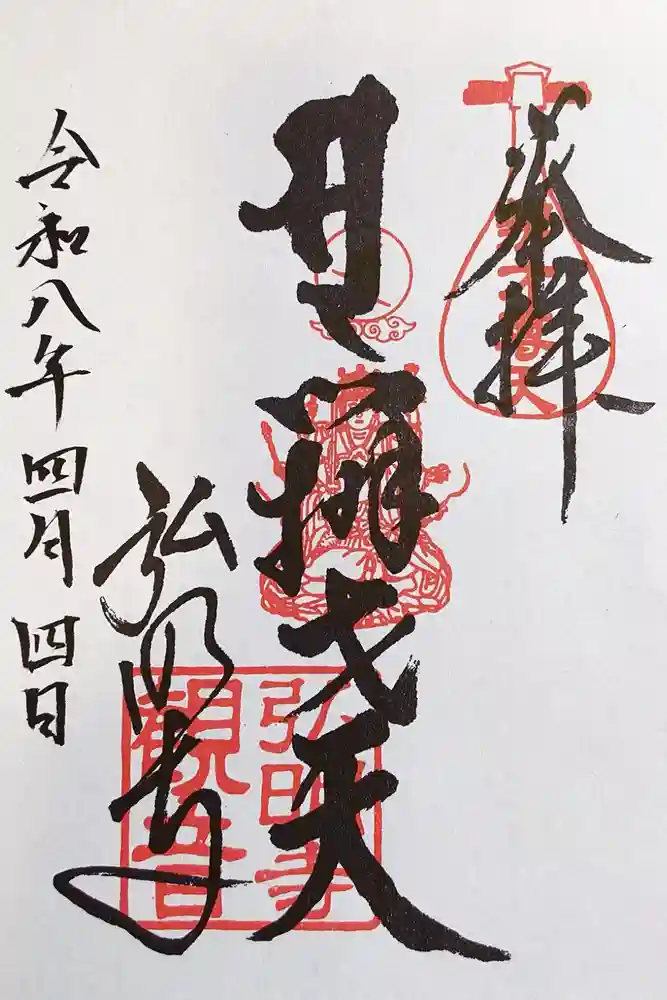 奉拝
辨才天
弘明寺
令和八年四月四日
弘明寺
観音